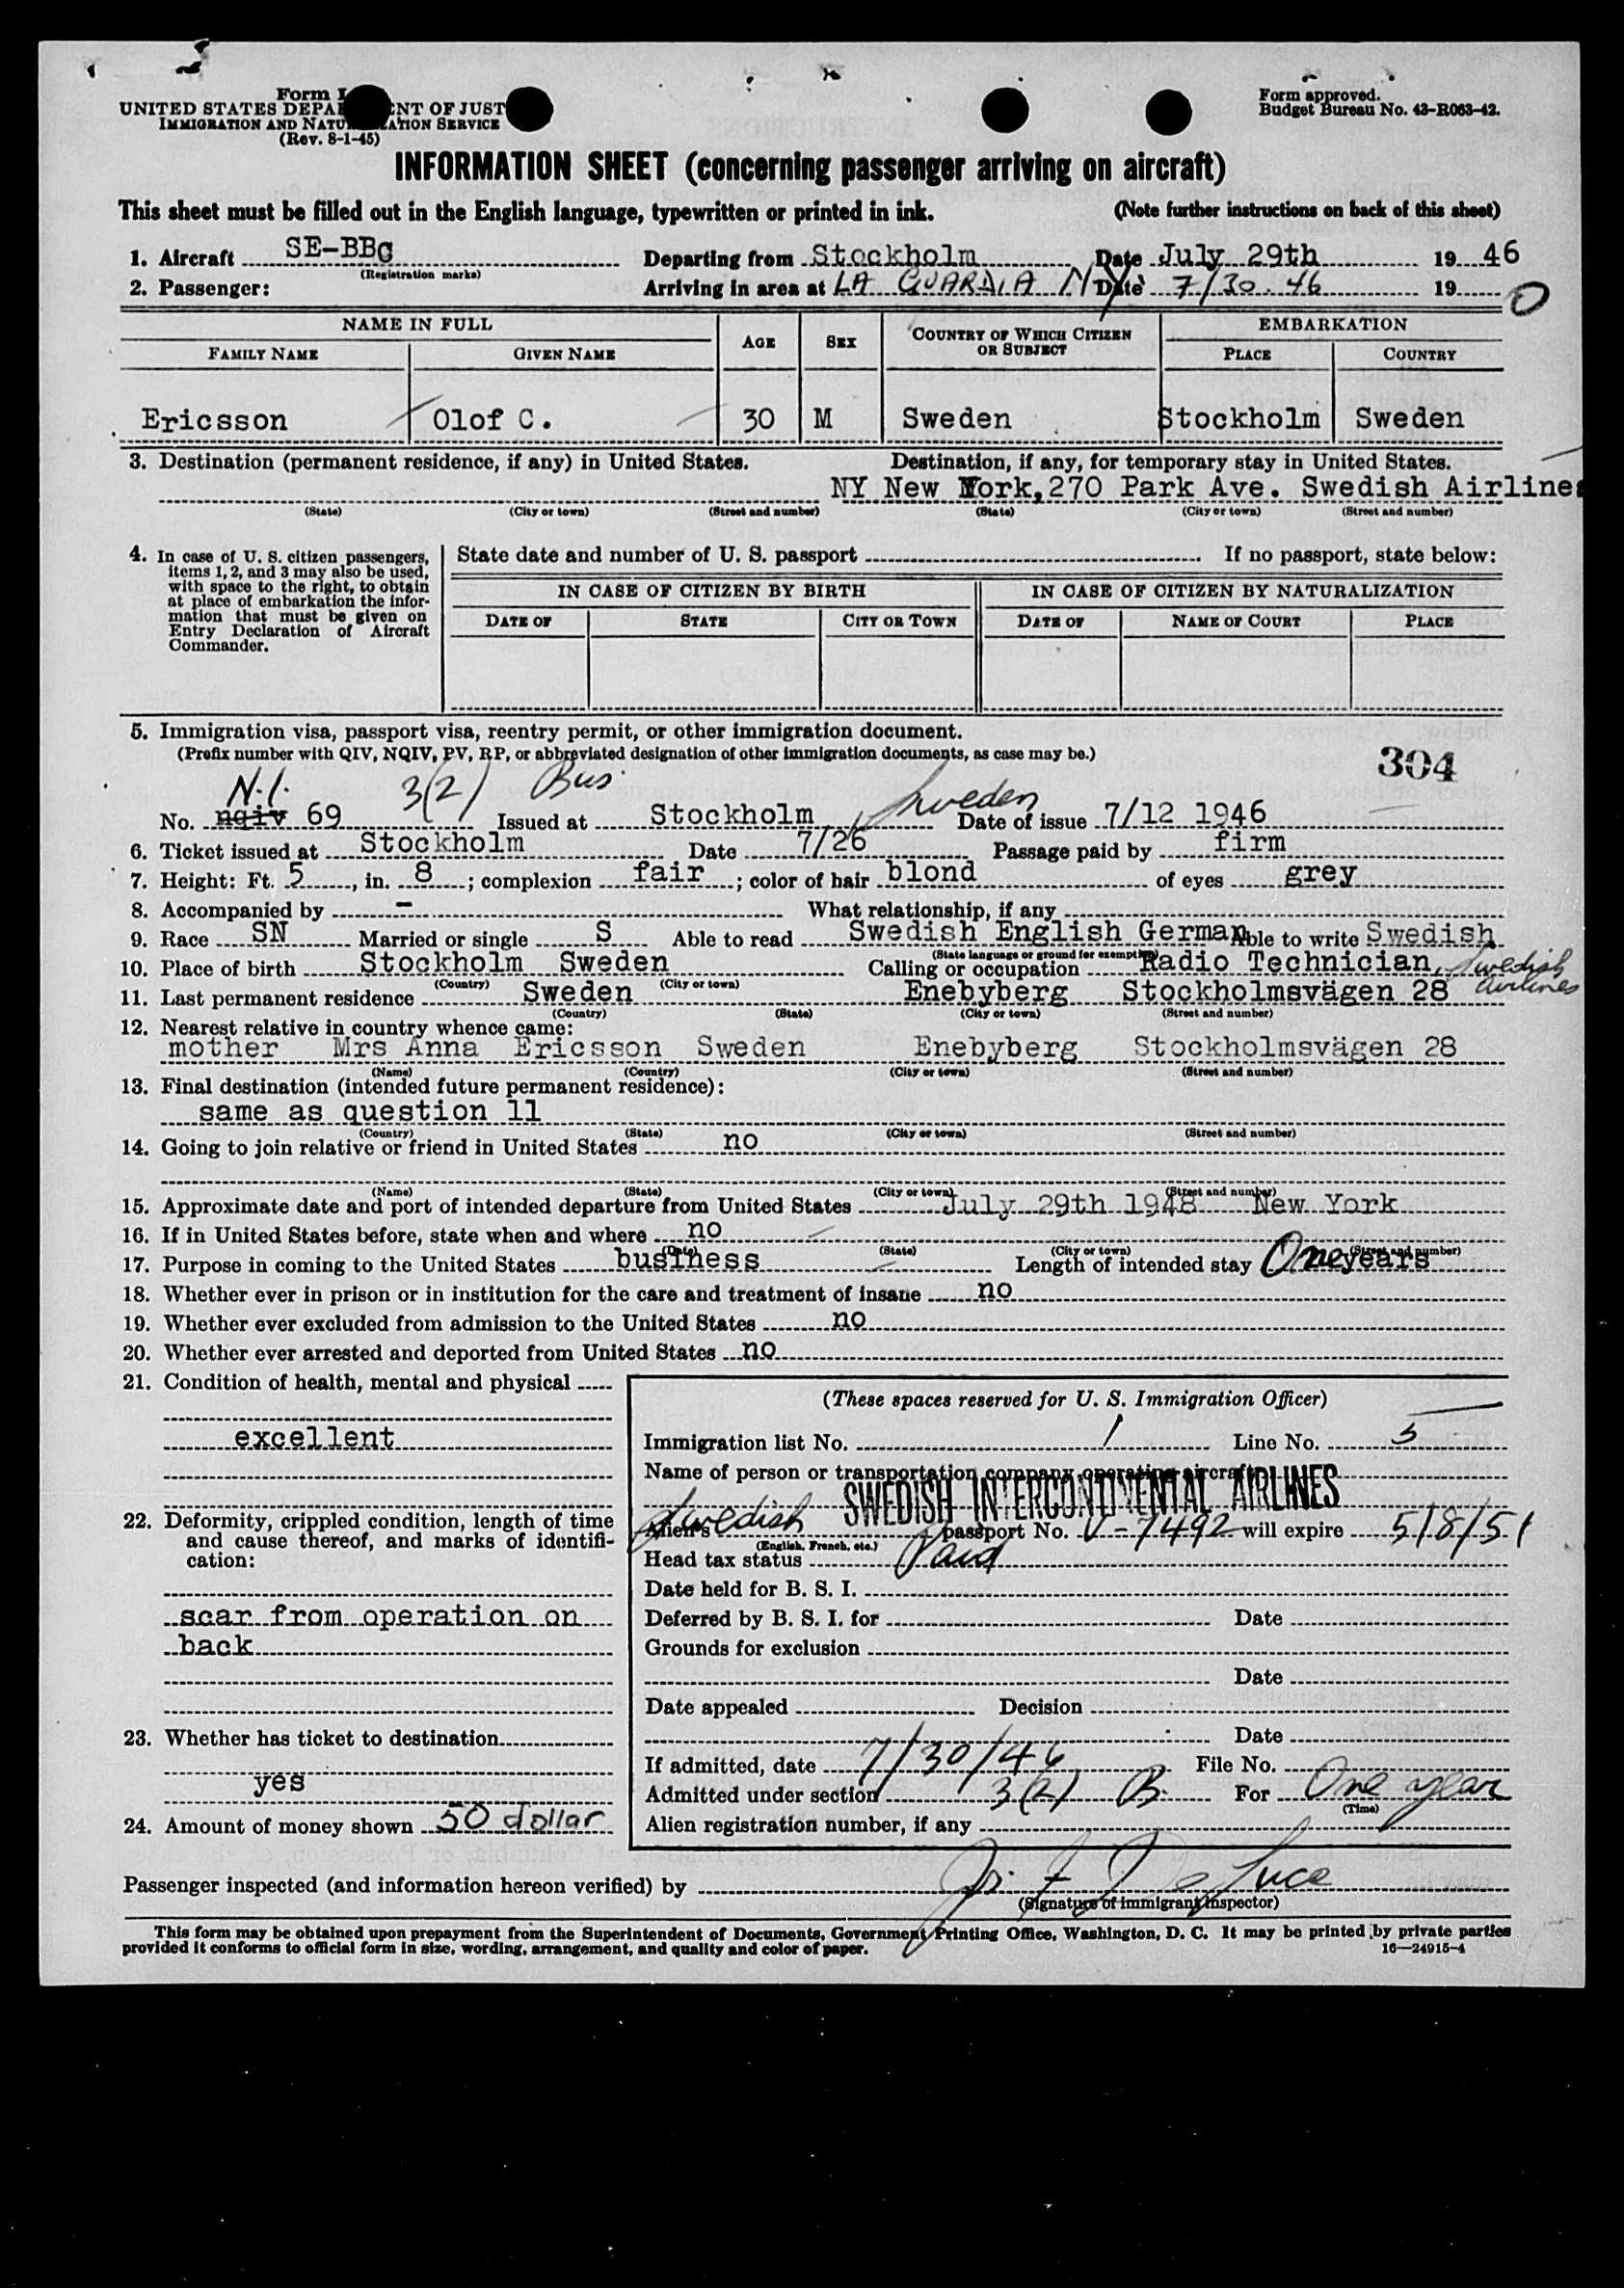 Form I
UNITED STATES DEPA NT OF JUST
IMMIGRATION AND NATU ATION SERVICE
(Rev. 8-1-45)
Form approved.
Budget Bureau No. 43-R063-42.
INFORMATION SHEET (concerning passenger arriving on aircraft)
This sheet must be filled out in the English language, typewritten or printed in ink. (Note further instructions on back of this sheet)
1. Aircraft SE-BBG Departing from Stockholm Date July 29th 19 46
(Registration marks)
2. Passenger: Arriving in area at LA GUARDIA NY Date 7/30.46 19 0
NAME IN FULL AGE SEX COUNTRY OF WHICH CITIZEN OR SUBJECT EMBARKATION
FAMILY NAME GIVEN NAME PLACE COUNTRY
Ericsson Olof C. 30 M Sweden Stockholm Sweden
3. Destination (permanent residence, if any) in United States. Destination, if any, for temporary stay in United States.
NY New York,270 Park Ave. Swedish Airlines
(State) (City or town) (Street and number) (State) (City or town) (Street and number)
4. In case of U. S. citizen passengers, items 1, 2, and 3 may also be used, with space to the right, to obtain at place of embarkation the information that must be given on Entry Declaration of Aircraft Commander.
State date and number of U. S. passport If no passport, state below:
IN CASE OF CITIZEN BY BIRTH IN CASE OF CITIZEN BY NATURALIZATION
DATE OF STATE CITY OR TOWN DATE OF NAME OF COURT PLACE
5. Immigration visa, passport visa, reentry permit, or other immigration document.
(Prefix number with QIV, NQIV, PV, RP, or abbreviated designation of other immigration documents, as case may be.)
304
N.I. 3(2) Bus. Sweden
No. nqiv 69 Issued at Stockholm Date of issue 7/12 1946
6. Ticket issued at Stockholm Date 7/26 Passage paid by firm
7. Height: Ft. 5, in. 8; complexion fair; color of hair blond of eyes grey
8. Accompanied by - What relationship, if any
9. Race SN Married or single S Able to read Swedish English German Able to write Swedish
(State language or ground for exemption)
10. Place of birth Stockholm Sweden Calling or occupation Radio Technician, Swedish Airlines
(Country) (City or town)
11. Last permanent residence Sweden Enebyberg Stockholmsvägen 28
(Country) (State) (City or town) (Street and number)
12. Nearest relative in country whence came:
mother Mrs Anna Ericsson Sweden Enebyberg Stockholmsvägen 28
(Name) (Country) (City or town) (Street and number)
13. Final destination (intended future permanent residence):
same as question 11
(Country) (State) (City or town) (Street and number)
14. Going to join relative or friend in United States no
(Name) (State) (City or town) (Street and number)
15. Approximate date and port of intended departure from United States July 29th 1948 New York
16. If in United States before, state when and where no
(Date) (State) (City or town) (Street and number)
17. Purpose in coming to the United States business Length of intended stay One years
18. Whether ever in prison or in institution for the care and treatment of insane no
19. Whether ever excluded from admission to the United States no
20. Whether ever arrested and deported from United States no
21. Condition of health, mental and physical
excellent
22. Deformity, crippled condition, length of time and cause thereof, and marks of identification:
scar from operation on
back
23. Whether has ticket to destination
yes
24. Amount of money shown 50 dollar
(These spaces reserved for U. S. Immigration Officer)
Immigration list No. 1 Line No. 5
Name of person or transportation company operating aircraft
SWEDISH INTERCONTINENTAL AIRLINES
Alien's Swedish passport No. V-7492 will expire 5/8/51
(English, French, etc.)
Head tax status Paid
Date held for B. S. I.
Deferred by B. S. I. for Date
Grounds for exclusion
Date
Date appealed Decision
Date
If admitted, date 7/30/46 File No.
Admitted under section 3(2) B. For One year
(Time)
Alien registration number, if any
Passenger inspected (and information hereon verified) by De Luca
(Signature of immigrant inspector)
This form may be obtained upon prepayment from the Superintendent of Documents, Government Printing Office, Washington, D. C. It may be printed by private parties
provided it conforms to official form in size, wording, arrangement, and quality and color of paper. 16—24915-4